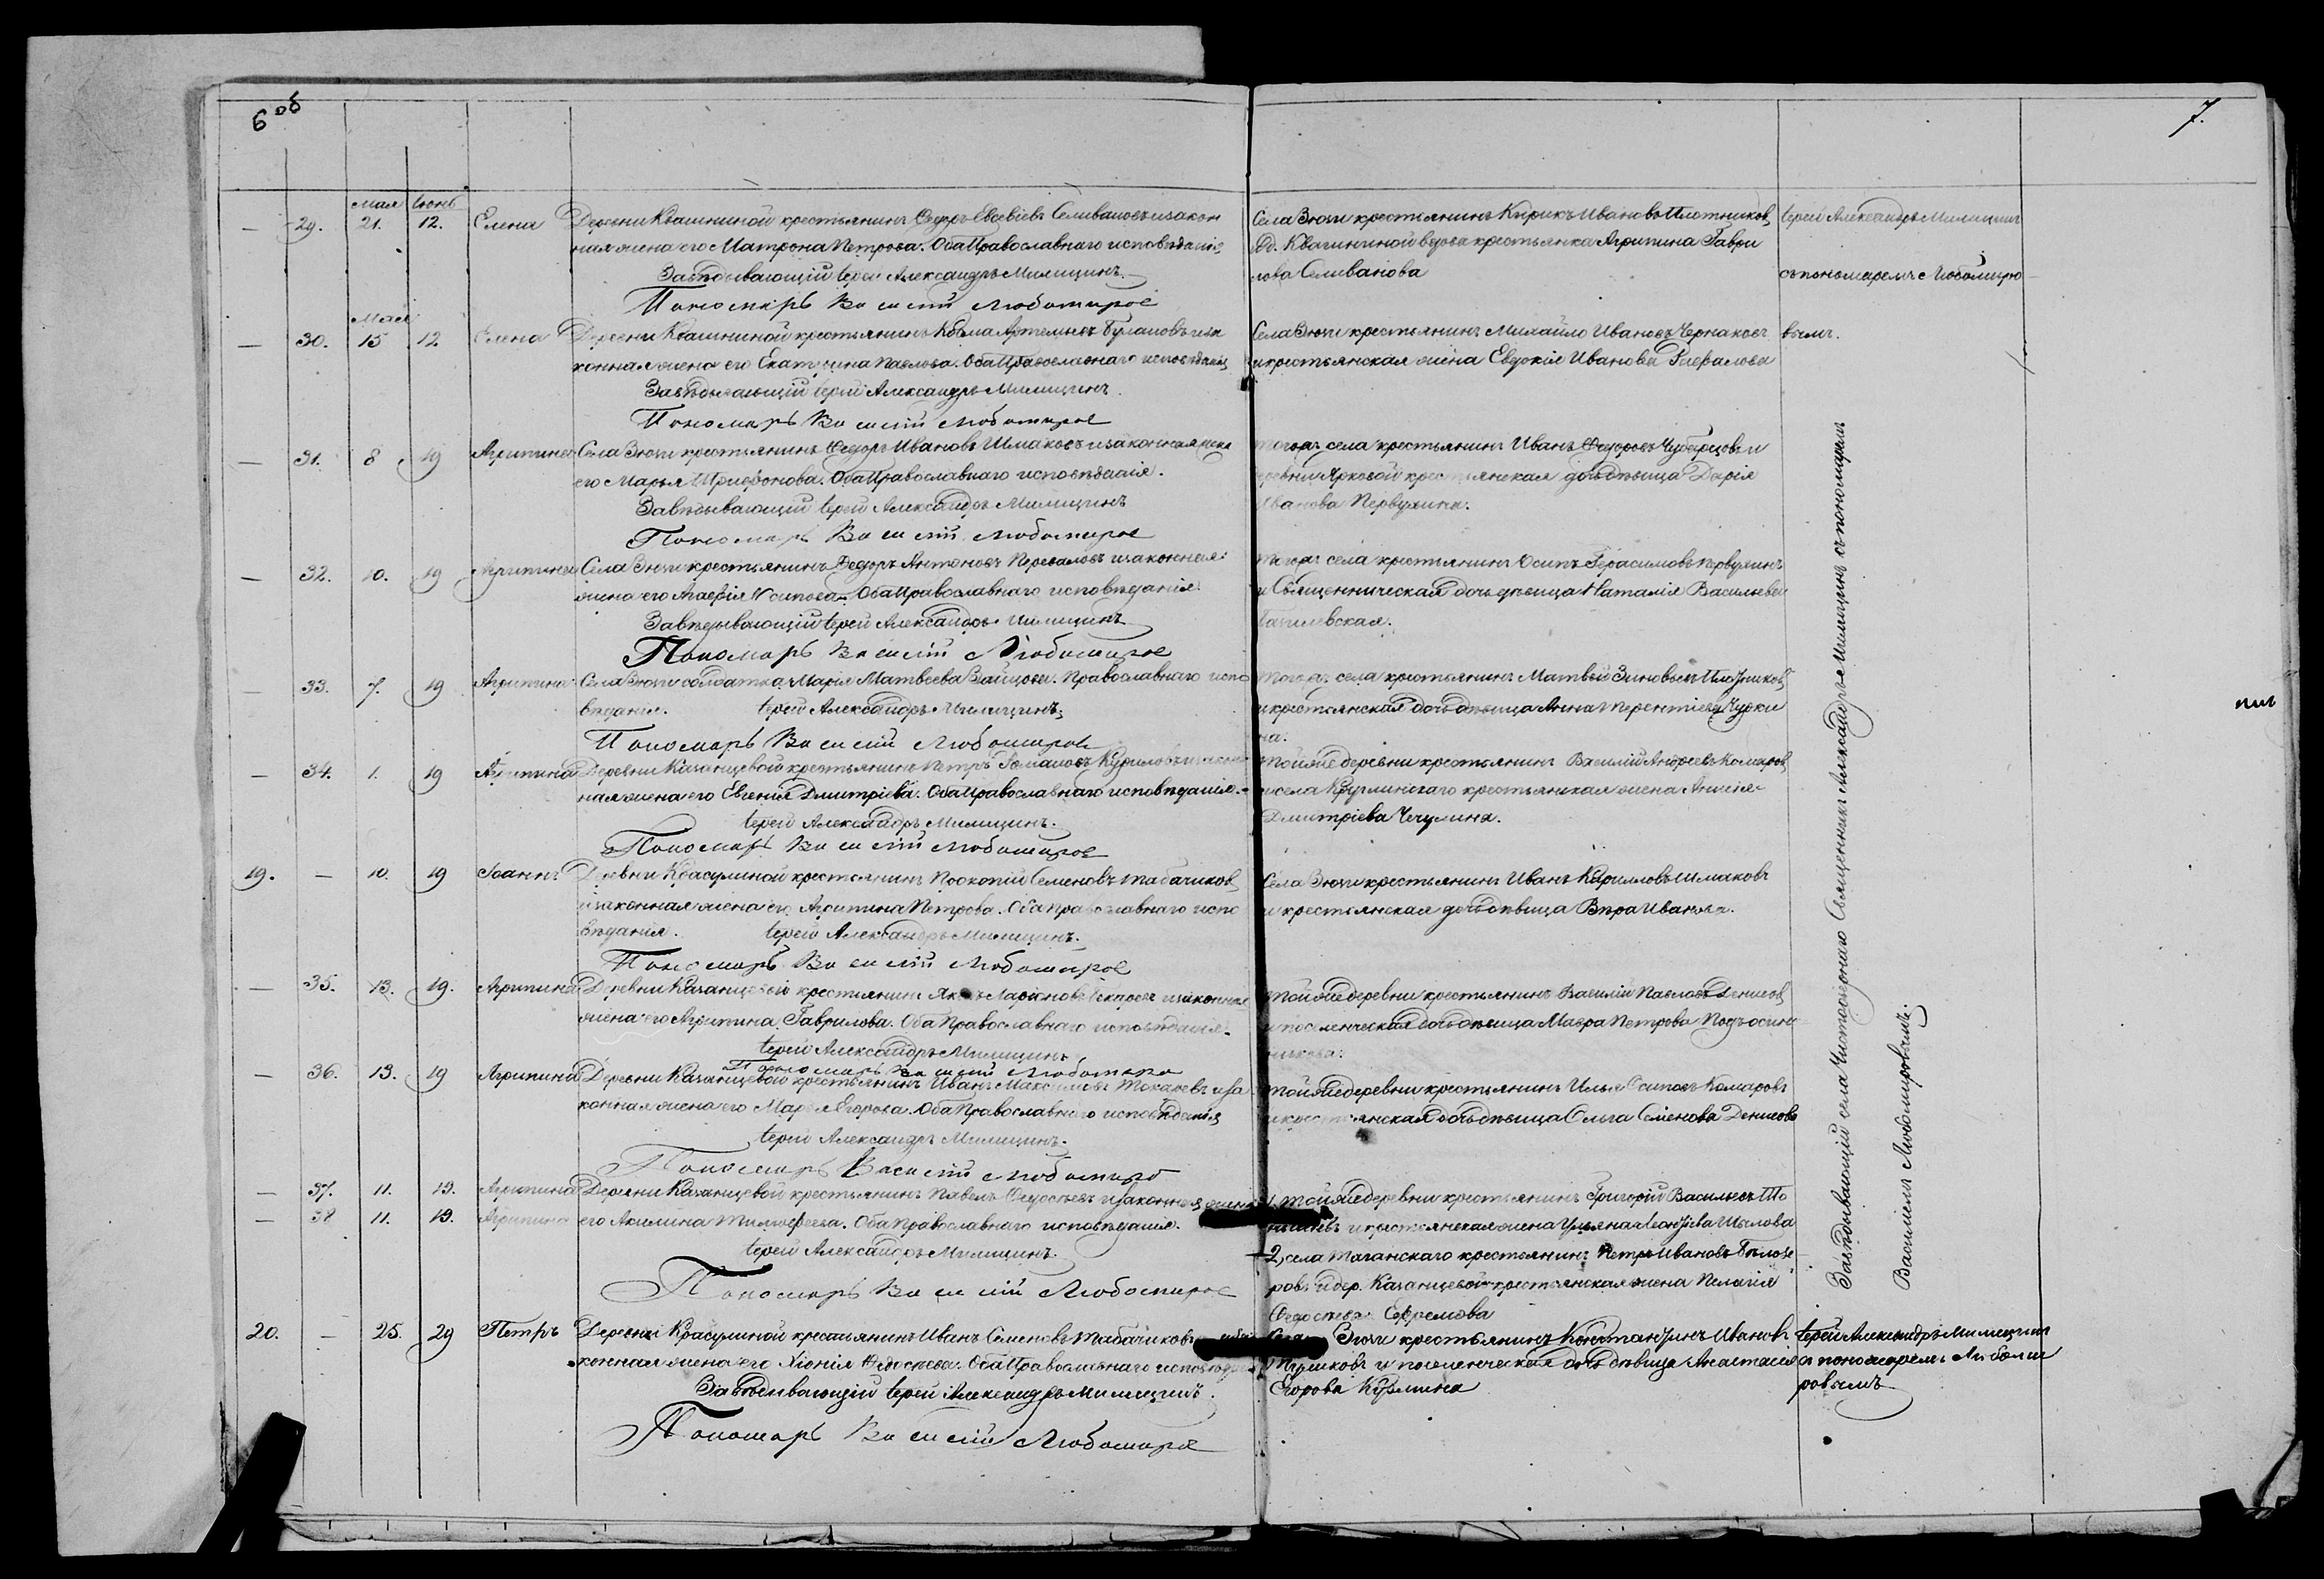 6 об
7.
Мая Іюнь
— 29. 21. 12. Елена Деревни Квашниной крестьянинъ Ѳедоръ Евсевіевъ Селивановъ и закон
ная жена его Матрона Петрова. Оба Православнаго исповѣданія
Завѣдывающій Іерей Александръ Милицинъ.
Пономарь Василій Любомировъ
Села Зюзи крестьянинъ Кирикъ Ивановъ Плотников
д. Квашниной вдова крестьянка Агрипина Гаври
лова Селиванова
Іерей Александръ Милицин
съ пономаремъ Любомиро
вымъ.
Мая
— 30. 15 12 Елена Деревни Квашниной крестьянинъ Козьма Артемьевъ и за
конная жена его Екатерина Павлова. Оба Православнаго исповѣданія
Завѣдывающій Іерей Александръ Милицинъ
Пономарь Василій Любомировъ
Села Зюзи крестьянинъ Михайло Ивановъ Чернаковъ
и крестьянская жена Евдокія Иванова
— 31. 8 19 Агрипина Села Зюзи крестьянинъ Ѳедоръ Ивановъ Шмаковъ и законная жена
его Марья Триѳонова. Оба Православнаго исповѣданія.
Завѣдывающій Іерей Александръ Милицинъ
Пономарь Василій Любомировъ
Тогожъ села крестьянинъ Иванъ Ѳедоровъ и
деревни Ярковой крестьянская дочь дѣвица Дарія
Иванова Первухина.
— 32. 10. 19 Агрипина Села Зюзи крестьянинъ Ѳедоръ Антоновъ Переваловъ и законная
жена его Агаѳія Осипова. Оба Православнаго исповѣданія.
Завѣдывающій Іерей Александръ Милицинъ
Пономарь Василій Любомировъ
Тогожъ села крестьянинъ Осипъ Герасимовъ Первухинъ
и Священническая дочь дѣвица Наталія Васильева
— 33. 7. 19 Агрипина Села Зюзи солдатка Марія Матвѣева. Православнаго испо
вѣданія. Іерей Александръ Милицинъ.
Пономарь Василій Любомировъ
Тогожъ села крестьянинъ Матвѣй Зиновьевъ Плотников
и крестьянская дочь дѣвица Анна Терентіева Чурки
на.
— 34. 1. 19 Агрипина Деревни Казанцевой крестьянинъ Петръ Романовъ Куриловъ и закон
ная жена его Евгенія Дмитріева. Оба Православнаго исповѣданія.
Іерей Александръ Милицинъ.
Пономарь Василій Любомировъ
Тойже деревни крестьянинъ Василій Андреевъ Комаров
и села Круглинскаго крестьянская жена Анисія
Дмитріева Чечулина.
19. — 10. 19 Іоаннъ Деревни Красулиной крестьянинъ Прокопій Семеновъ Табачиков
и законная жена его Агрипина Петрова. Оба православнаго испо
вѣданія. Іерей Александръ Милицинъ.
Пономарь Василій Любомировъ
Села Зюзи крестьянинъ Иванъ Карилловъ Шмаковъ
и крестьянская дочь дѣвица Вѣра Иванова.
— 35. 13. 19. Агрипина Деревни Казанцевой крестьянинъ Ларіоновъ и законная
жена его Агрипина Гаврилова. Оба Православнаго исповѣданія.
Іерей Александръ Милицинъ
Пономарь Василій Любомировъ
Тойже деревни крестьянинъ Василій Павловъ Денисов
и поселенческая дочь дѣвица Мавра Петрова
— 36. 13. 19 Агрипина Деревни Казанцевой крестьянинъ Иванъ Максимовъ Токаревъ и за
конная жена его Марья Егорова. Оба Православнаго исповѣданія
Іерей Александръ Милицинъ.
Пономарь Василій Любомировъ
Тойже деревни крестьянинъ Илья Осиповъ Комаровъ
и крестьянская дочь дѣвица Ольга Семенова Денисова
— 37. 11. 19. Агрипина Деревни Казанцевой крестьянинъ Павелъ Ѳедосѣевъ и законная жена
— 38 11. 19. Агрипина его Акилина Тимоѳеева. Оба Православнаго исповѣданія.
Іерей Александръ Милицинъ.
Пономарь Василій Любомировъ
1, Тойже деревни крестьянинъ Григорій Васильевъ
и крестьянская жена Ульяна Леонтіева Шилова
2, села Таганскаго крестьянинъ Петръ Ивановъ Бѣлозе
ровъ и дер. Казанцевой крестьянская жена Пелагія
Ѳедосѣева Ефремова
20. — 25. 29 Петръ Деревни Красулиной крестьянинъ Иванъ Семеновъ Табачиковъ и за
конная жена его Хіонія Ѳедосѣева. Оба Православнаго исповѣданія
Завѣдывающій Іерей Александръ Милицинъ.
Пономарь Василій Любомировъ
Села Зюзи крестьянинъ Константинъ Ивановъ
Пушковъ и поселенческая дочь дѣвица Анастасія
Егорова Кузмина
Іерей Александръ Милицин
съ пономаремъ Любоми
ровымъ
Завѣдывающій села Чистоозернаго Священникъ Александръ Милицинъ съ пономаремъ
Василіемъ Любомировымъ.